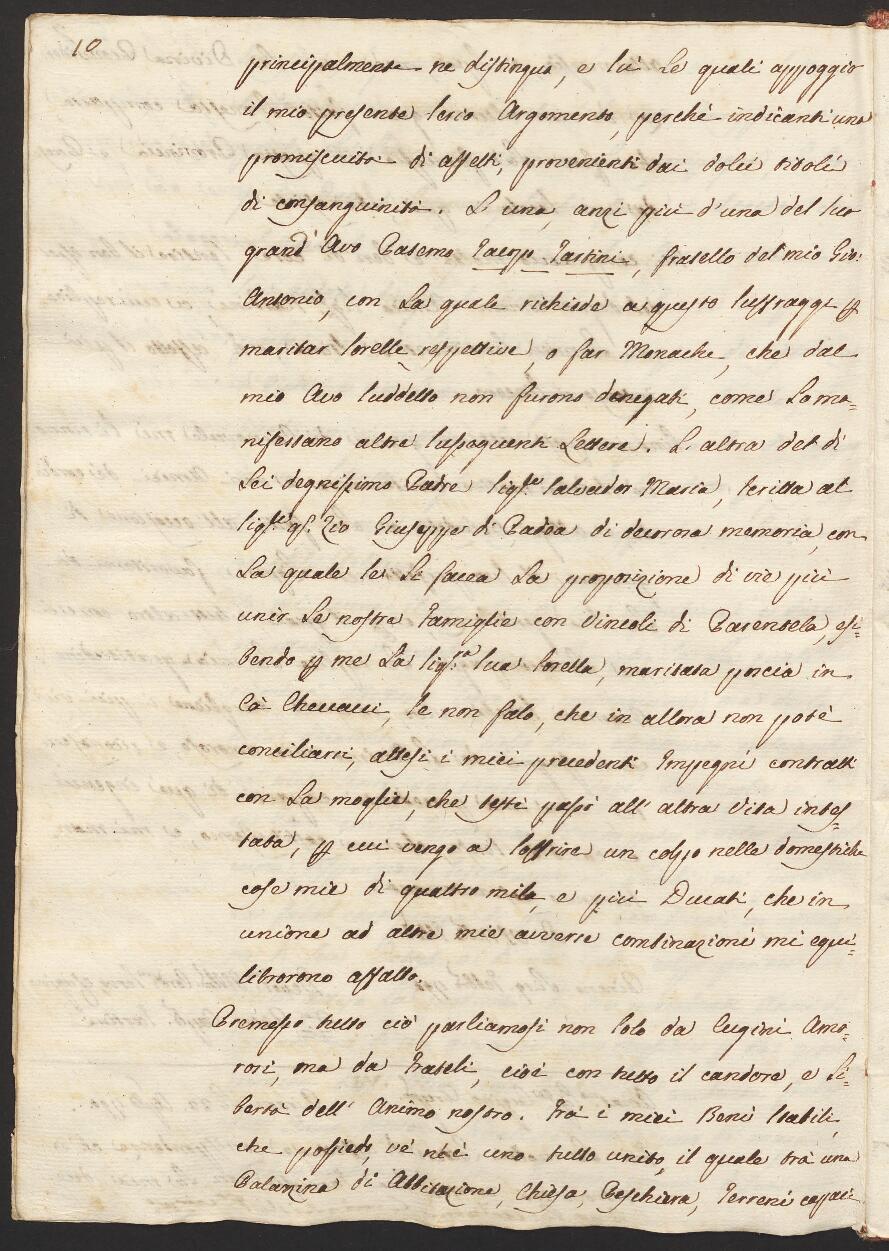 10
principalmente ne distinguo, e sù le quali appoggio
il mio presente serio Argomento, perchè indicanti una
promiscuità di affetti, provenienti dai dolci titoli
di consanguinità. L'una, anzi più d'una del suo
grand'Avo Paterno Jacopo Tartini, fratello del mio Gio:
Antonio, con la quale richiede a questo suffraggi p
maritar sorelle respettive, o far Monache, che dal
mio Avo suddetto non furono denegati, come lo ma=
nifestano altre susseguenti Lettere. L'altra del di
Lei degnissimo Padre sig.r Salvador Maria, scritta al
sig.r q.m Zio Giuseppe di Padoa di decorosa memoria, con
la quale se le facea la proposizione di vie più
unir le nostre Famiglie con vincoli di Parentela, esi=
bendo p me la sig.ra sua sorella, maritata poscia in
Cà Checcacci, se non falo, che in allora non potè
conciliarsi, attesi i miei precedenti Impegni contratti
con la moglie, che testè passò all'altra vita intes=
tata, p cui vengo a soffrire un colpo nelle domestiche
cose mie di quattro mila, e più Ducati, che in
unione ad altre mie avverse combinazioni mi equi=
librorono affatto.
Premesso tutto ciò parliamosi non solo da Cugini Amo=
rosi, ma da Frateli, cioè con tutto il candore, e li=
bertà dell'Animo nostro. Frà i miei Beni stabili,
che possiedo, vè nè è uno tutto unito, il quale trà una
Palazzina di Abbitazione, Chiesa, Peschiera, Terreni capaci